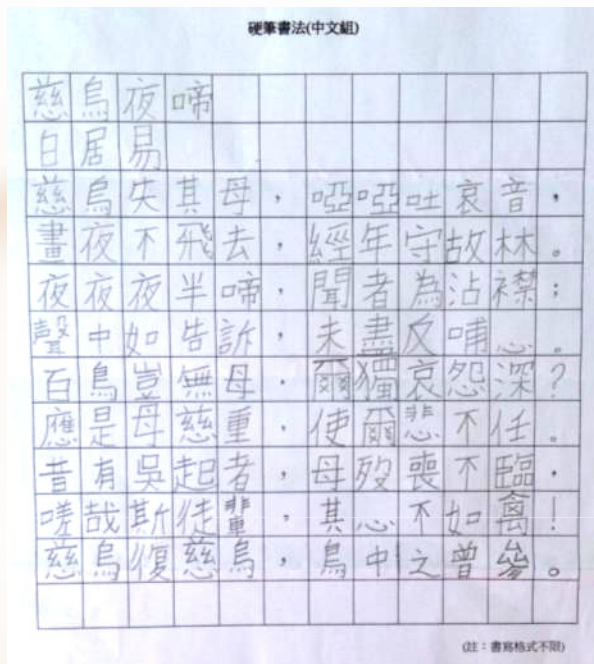 硬筆書法(中文組)
慈烏夜啼
白居易
慈烏失其母，啞啞吐哀音，
晝夜不飛去，經年守故林。
夜夜夜半啼，聞者為沾襟；
聲中如告訴，未盡反哺心。
百鳥豈無母，爾獨哀怨深？
應是母慈重，使爾悲不任。
昔有吳起者，母歿喪不臨，
嗟哉斯徒輩，其心不如禽！
慈烏復慈烏，鳥中之曾參。
(註：書寫格式不限)